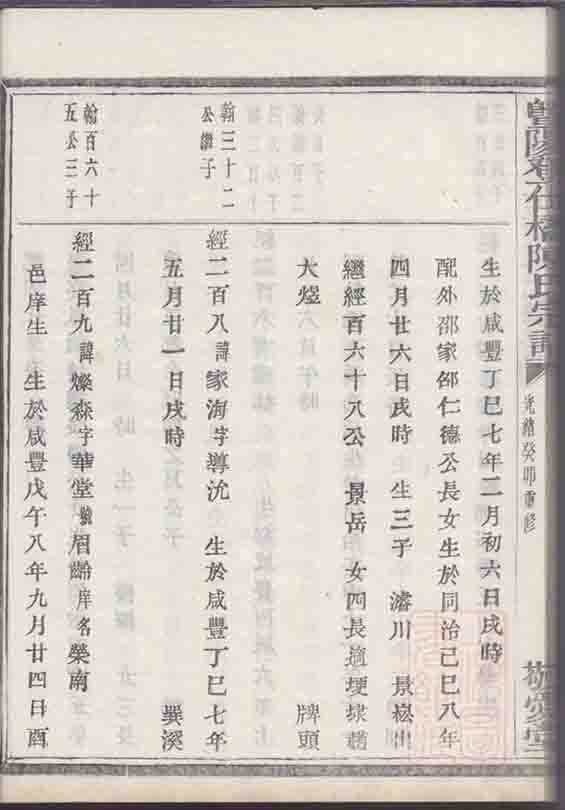 暨陽春在橋陳氏宗譜
光緒癸卯重修
敬愛堂
生於咸豐丁巳七年二月初六日戌時
配外邵家邵仁德公長女生於同治己巳八年
四月廿六日戌時 生三子 濬川 景崧出
繼經百六十八公 景岳 女四長適埂埭趙
大燈 牌頭
翰三十二
公繼子
經二百八諱家洵字導沇 生於咸豐丁巳七年
五月廿一日戌時 巽溪
翰百六十
五公三子
經二百九諱燦森字華堂號眉齡庠名榮南
邑庠生 生於咸豐戊午八年九月廿四日酉